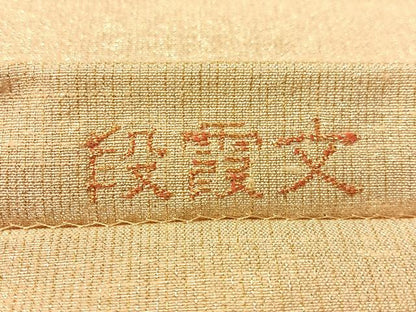 段霞文